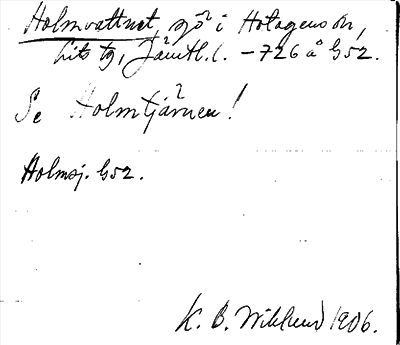 Holmvattnet, sjö i Hotagens sn,
Lits tg, Jämtl. l. – 726 å G52.
Se Holmtjärnen!
Holmsj. G52.
K. B. Wiklund 1906.